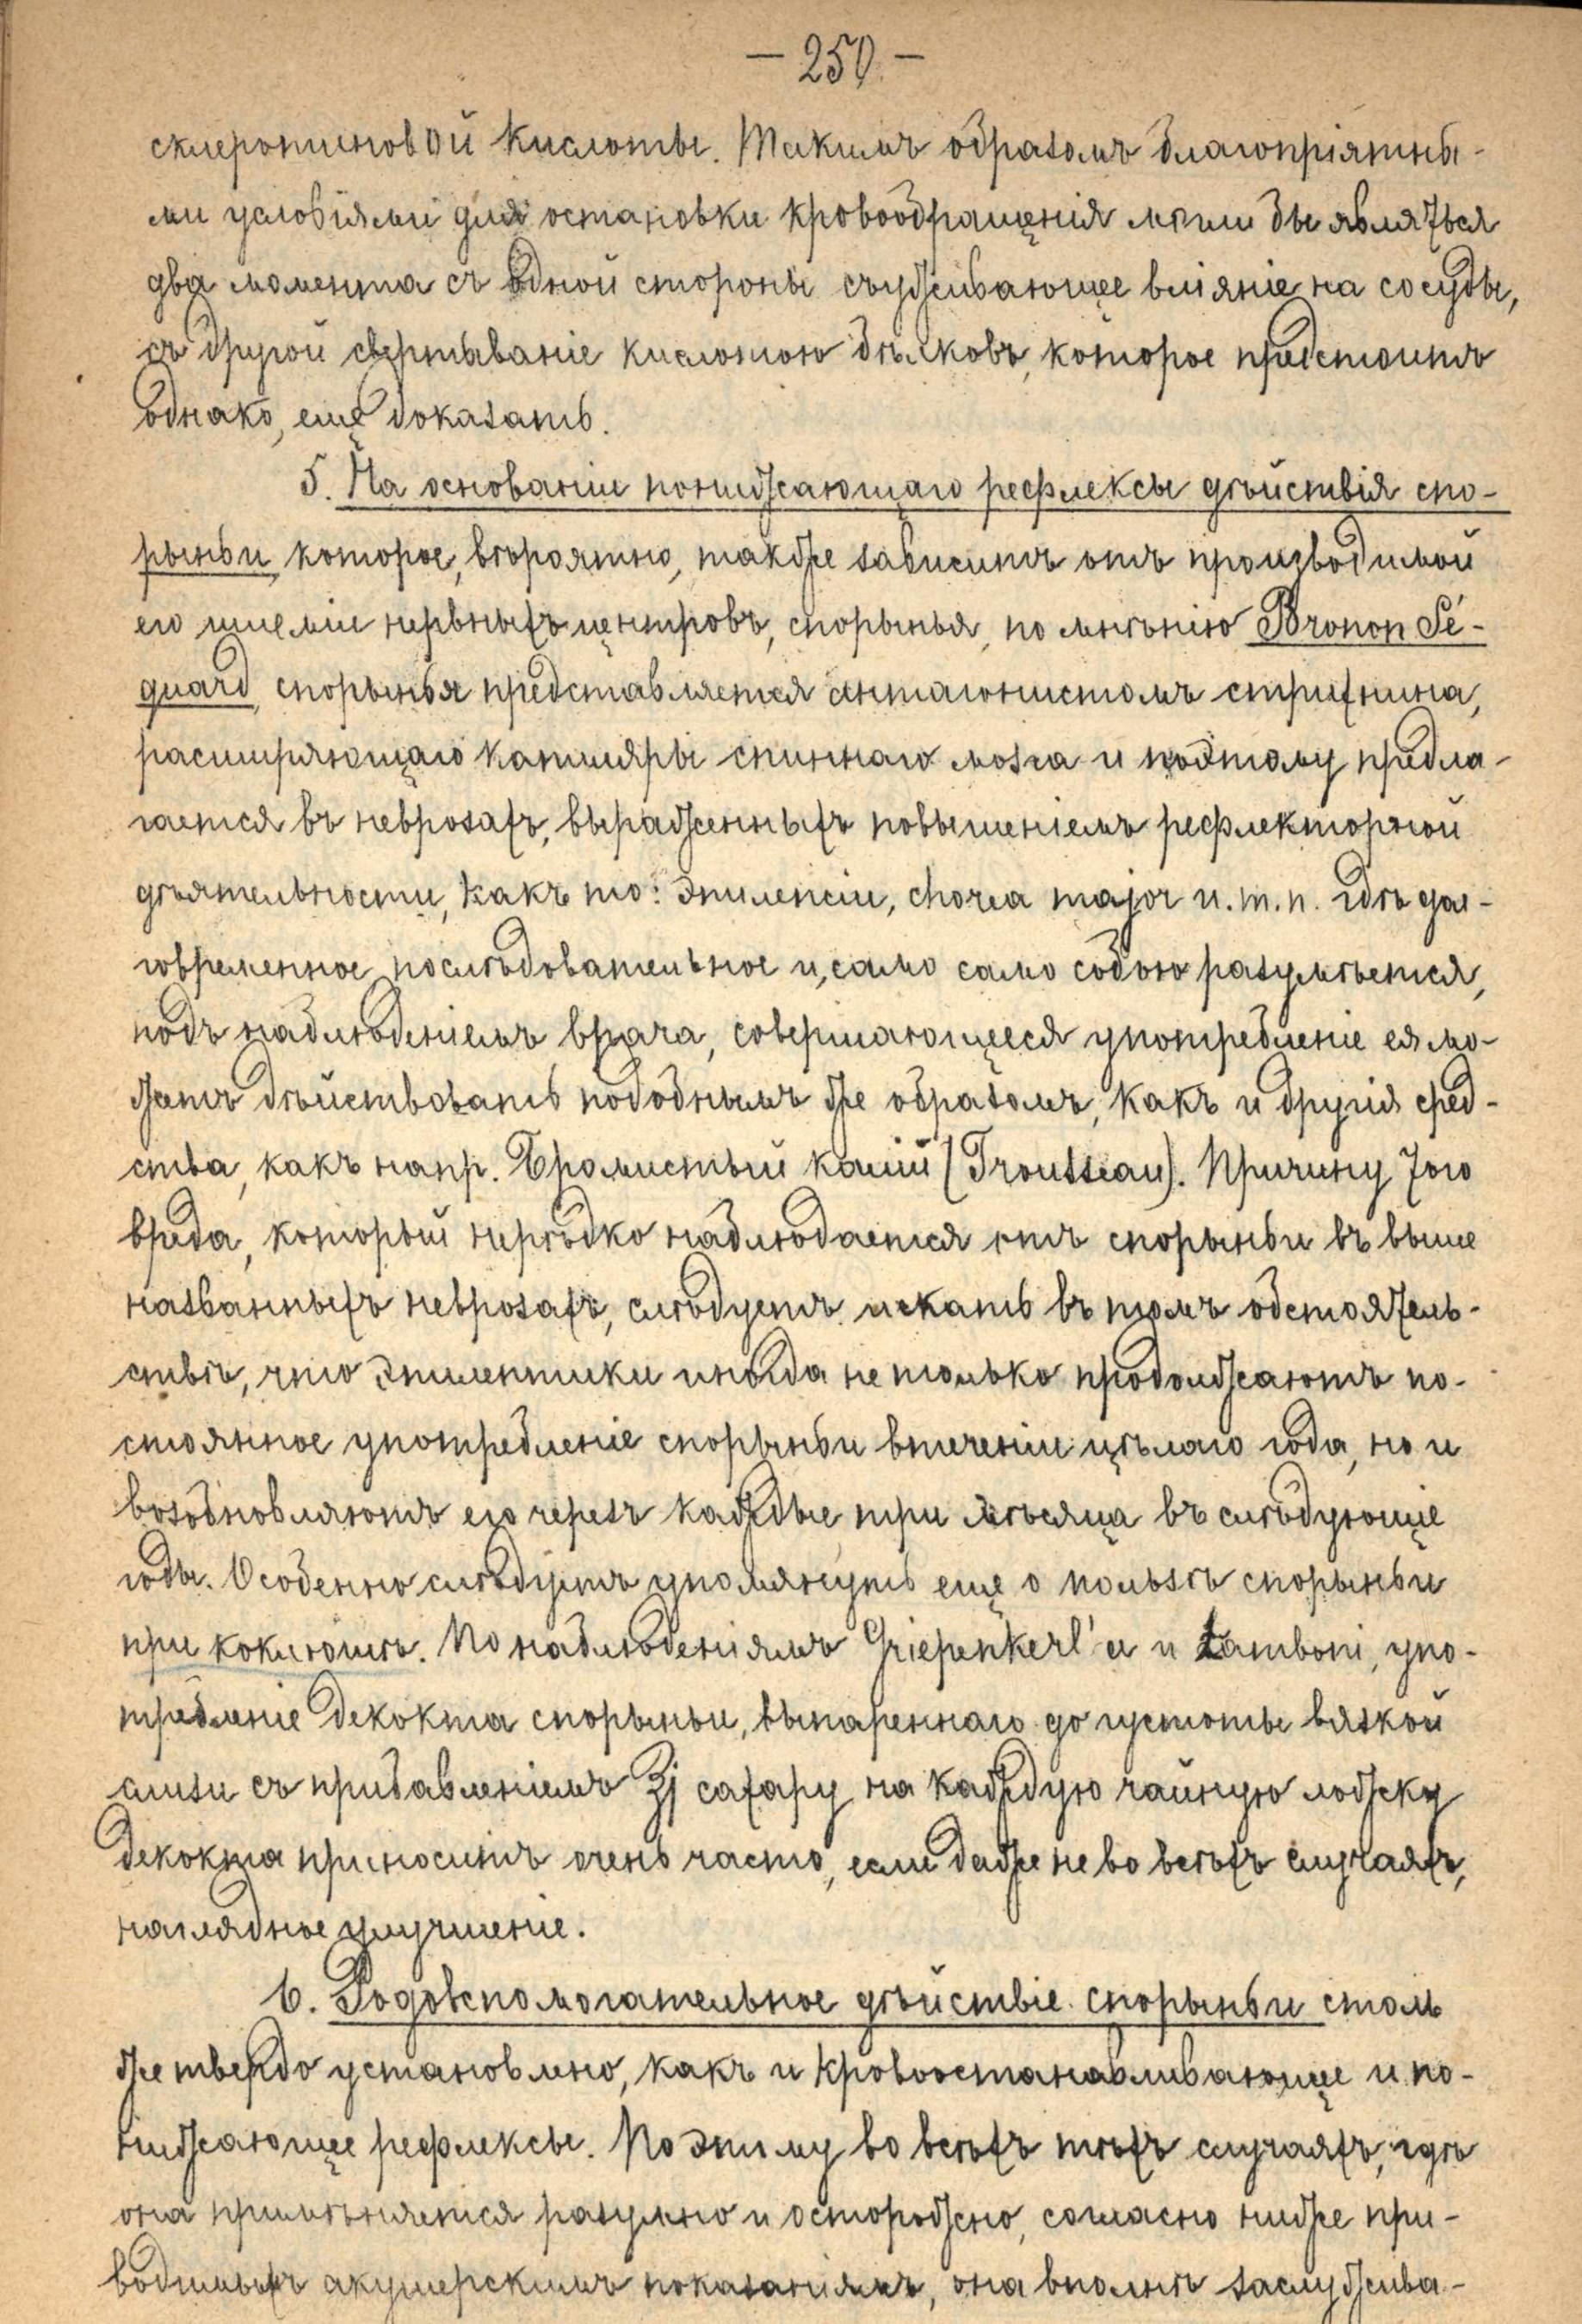 — 250 —
склеротиновой кислоты. Такимъ образомъ благопріятны-
ми условіями для остановки кровообращенія могли бы являться
два момента съ одной стороны съуживающее вліяніе на сосуды,
съ другой свертываніе кислотою бѣлковъ, которое предстоитъ
однако, еще доказать.
5. На основаніи понижающаго рефлексы дѣйствія спо-
рыньи, которое, вѣроятно, также зависитъ отъ производимой
ею ишеміи нервныхъ центровъ, спорынья, по мнѣнію Bronon Sé-
quard, спорынья представляется антагонистомъ стрихнина,
расширяющаго капилляры спиннаго мозга и поэтому предла-
гается въ неврозахъ, выраженныхъ повышеніемъ рефлекторной
дѣятельности, какъ то: эпилепсіи, chorea major и.т.п. гдѣ дол-
говременное, послѣдовательное и, само само собою разумѣется,
подъ наблюденіемъ врача, совершающееся употребленіе ея мо-
жетъ дѣйствовать подобнымъ же образомъ, какъ и другія сред-
ства, какъ напр. Бромистый калій (Trousseau). Причину того
вреда, который нерѣдко наблюдается отъ спорыньи въ выше
названныхъ неврозахъ, слѣдуетъ искать въ томъ обстоятель-
ствѣ, что эпилептики иногда не только продолжаютъ по-
стоянное употребленіе спорыньи втеченіи цѣлаго года, но и
возобновляютъ его черезъ каждые три мѣсяца въ слѣдующіе
годы. Особенно слѣдуетъ упомянуть еще о пользѣ спорыньи
при коклюшѣ. По наблюденіямъ Griepenkerl'a и Zamboni, упо-
требленіе декокта спорыньи, выпареннаго до густоты вязкой
слизи съ прибавленіемъ ʒj сахару на каждую чайную ложку
декокта приноситъ очень часто, если даже не во всѣхъ случаяхъ,
наглядное улучшеніе.
6. Родовспомогательное дѣйствіе спорыньи столь
же твердо установлено, какъ и кровоостанавливающее и по-
нижающее рефлексы. По этому во всѣхъ тѣхъ случаяхъ, гдѣ
она примѣняется разумно и осторожно, согласно ниже при-
водимымъ акушерскимъ показаніямъ, она вполнѣ заслужива-